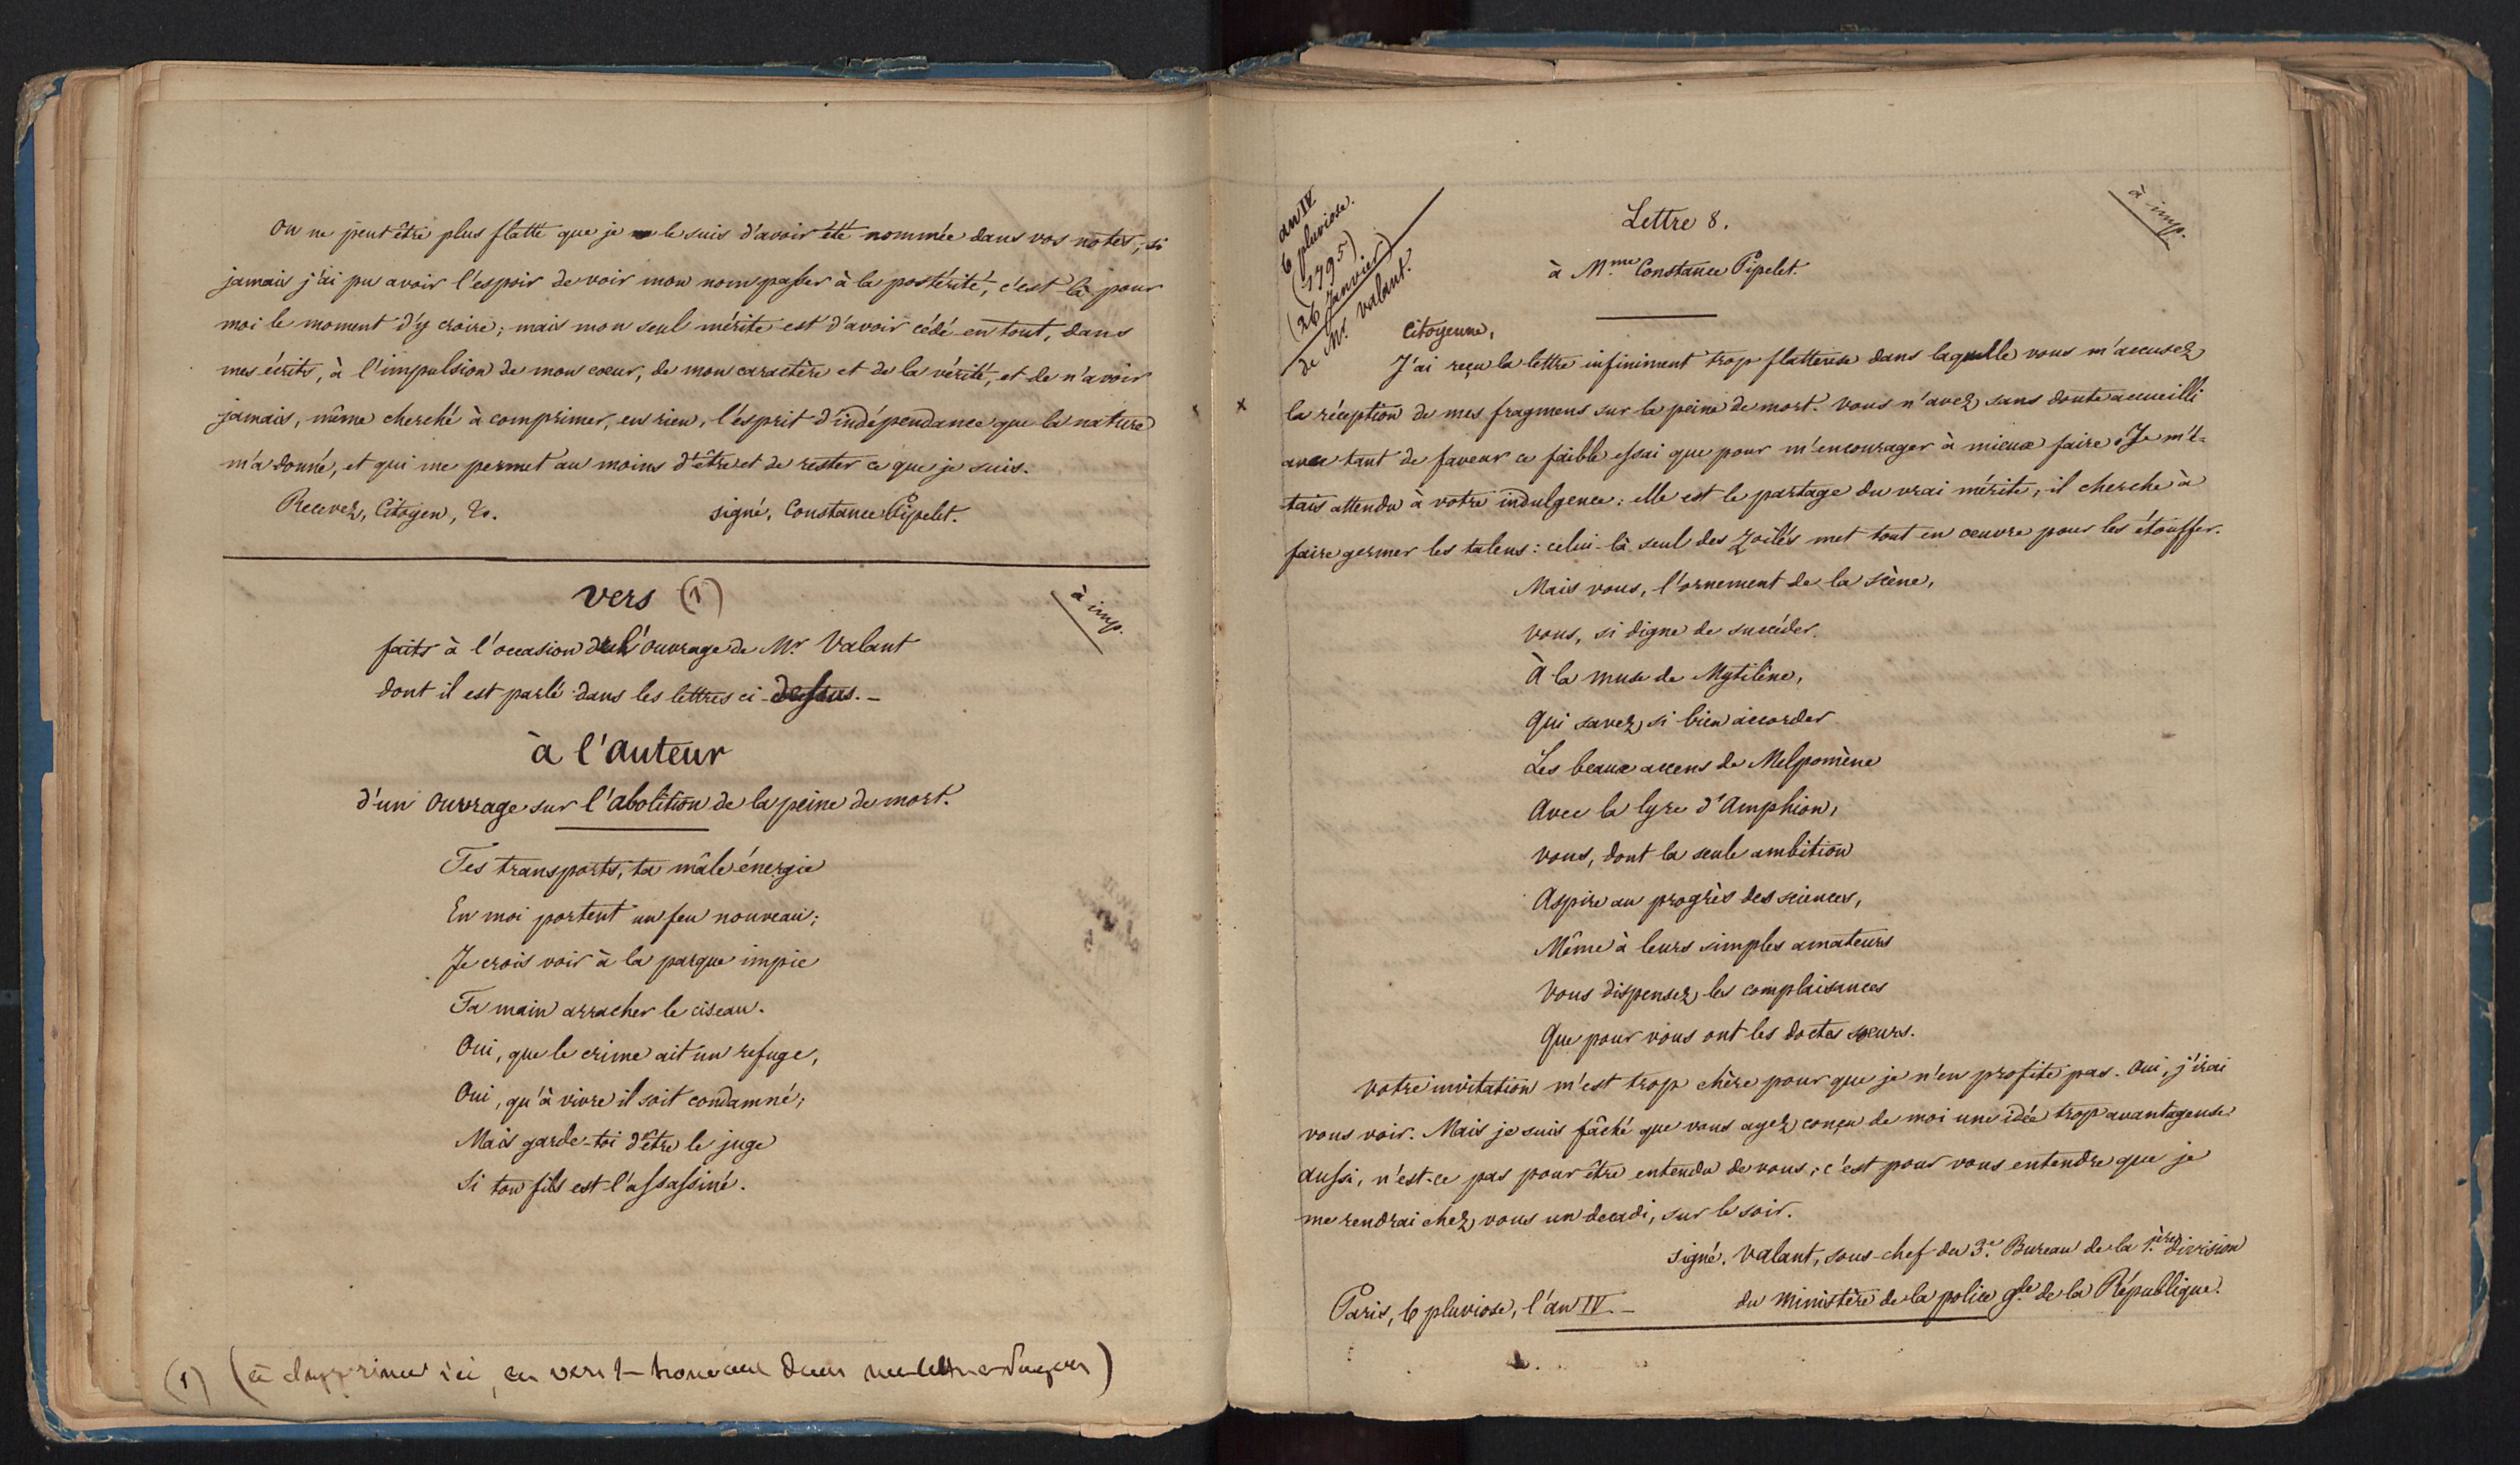 On ne peut être plus flatté que je le suis d'avoir été nommée dans vos notes; si
jamais j'ai pu avoir l'espoir de voir mon nom passer à la postérité, c'est là pour
moi le moment d'y croire; mais mon seul mérite est d'avoir cédé en tout, dans
mes écrits, à l'impulsion de mon cœur, de mon caractère et de la vérité, et de n'avoir
jamais, même cherché à comprimer, en rien, l'esprit d'indépendance que la nature
m'a donné, et qui me permet au moins d'être et de rester ce que je suis.
Recevez, Citoyen, &c. signé, Constance Pipelet.
vers (1)
à imp.
faits à l'occasion de l'ouvrage de Mr Valant
dont il est parlé dans les lettres ci-dessus.-
à l'auteur
d'un ouvrage sur l'abolition de la peine de mort.
Tes transports, ta mâle énergie
En moi portent un feu nouveau;
Je crois voir à la parque impie
Ta main arracher le ciseau.
Oui, que le crime ait un refuge,
Oui, qu'à vivre il soit condamné;
Mais garde-toi d'être le juge
Si ton fils est l'assassiné.
(1) (à ici, ces vers se dans )
an IV
6 pluviose.
(1795)
(26 Janvier)
de Mr. Valant.
à imp.
Lettre 8.
à Mme. Constance Pipelet.
Citoyenne,
J'ai reçu la lettre infiniment trop flatteuse dans laquelle vous m'accusez
x la réception de mes fragmens sur la peine de mort. Vous n'avez sans doute accueilli
avec tant de faveur ce faible essai que pour m'encourager à mieux faire. Je m'é-
tais attendu à votre indulgence: elle est le partage du vrai mérite; il cherche à
faire germer les talens: celui-là seul des Zoïles met tout en œuvre pour les étouffer.
Mais vous, l'ornement de la scène,
Vous, si digne de succéder
À la muse de Mytilène,
Qui savez si bien accorder
Les beaux accens de Melpomène
Avec la lyre d'Amphion,
Vous, dont la seule ambition
Aspire au progrès des sciences,
Même à leurs simples amateurs
Vous dispensez les complaisances
Que pour vous ont les doctes sœurs.
Votre invitation m'est trop chère pour que je n'en profite pas. Oui, j'irai
vous voir. Mais je suis fâché que vous ayez conçu de moi une idée trop avantageuse
aussi, n'est-ce pas pour être entendu de vous; c'est pour vous entendre que je
me rendrai chez vous un decadi, sur le soir.
signé. Valant, sous-chef du 3e. Bureau de la 1ère. division
du Ministère de la police gle de la République.
Paris, 6 pluviose, l'an IV.-